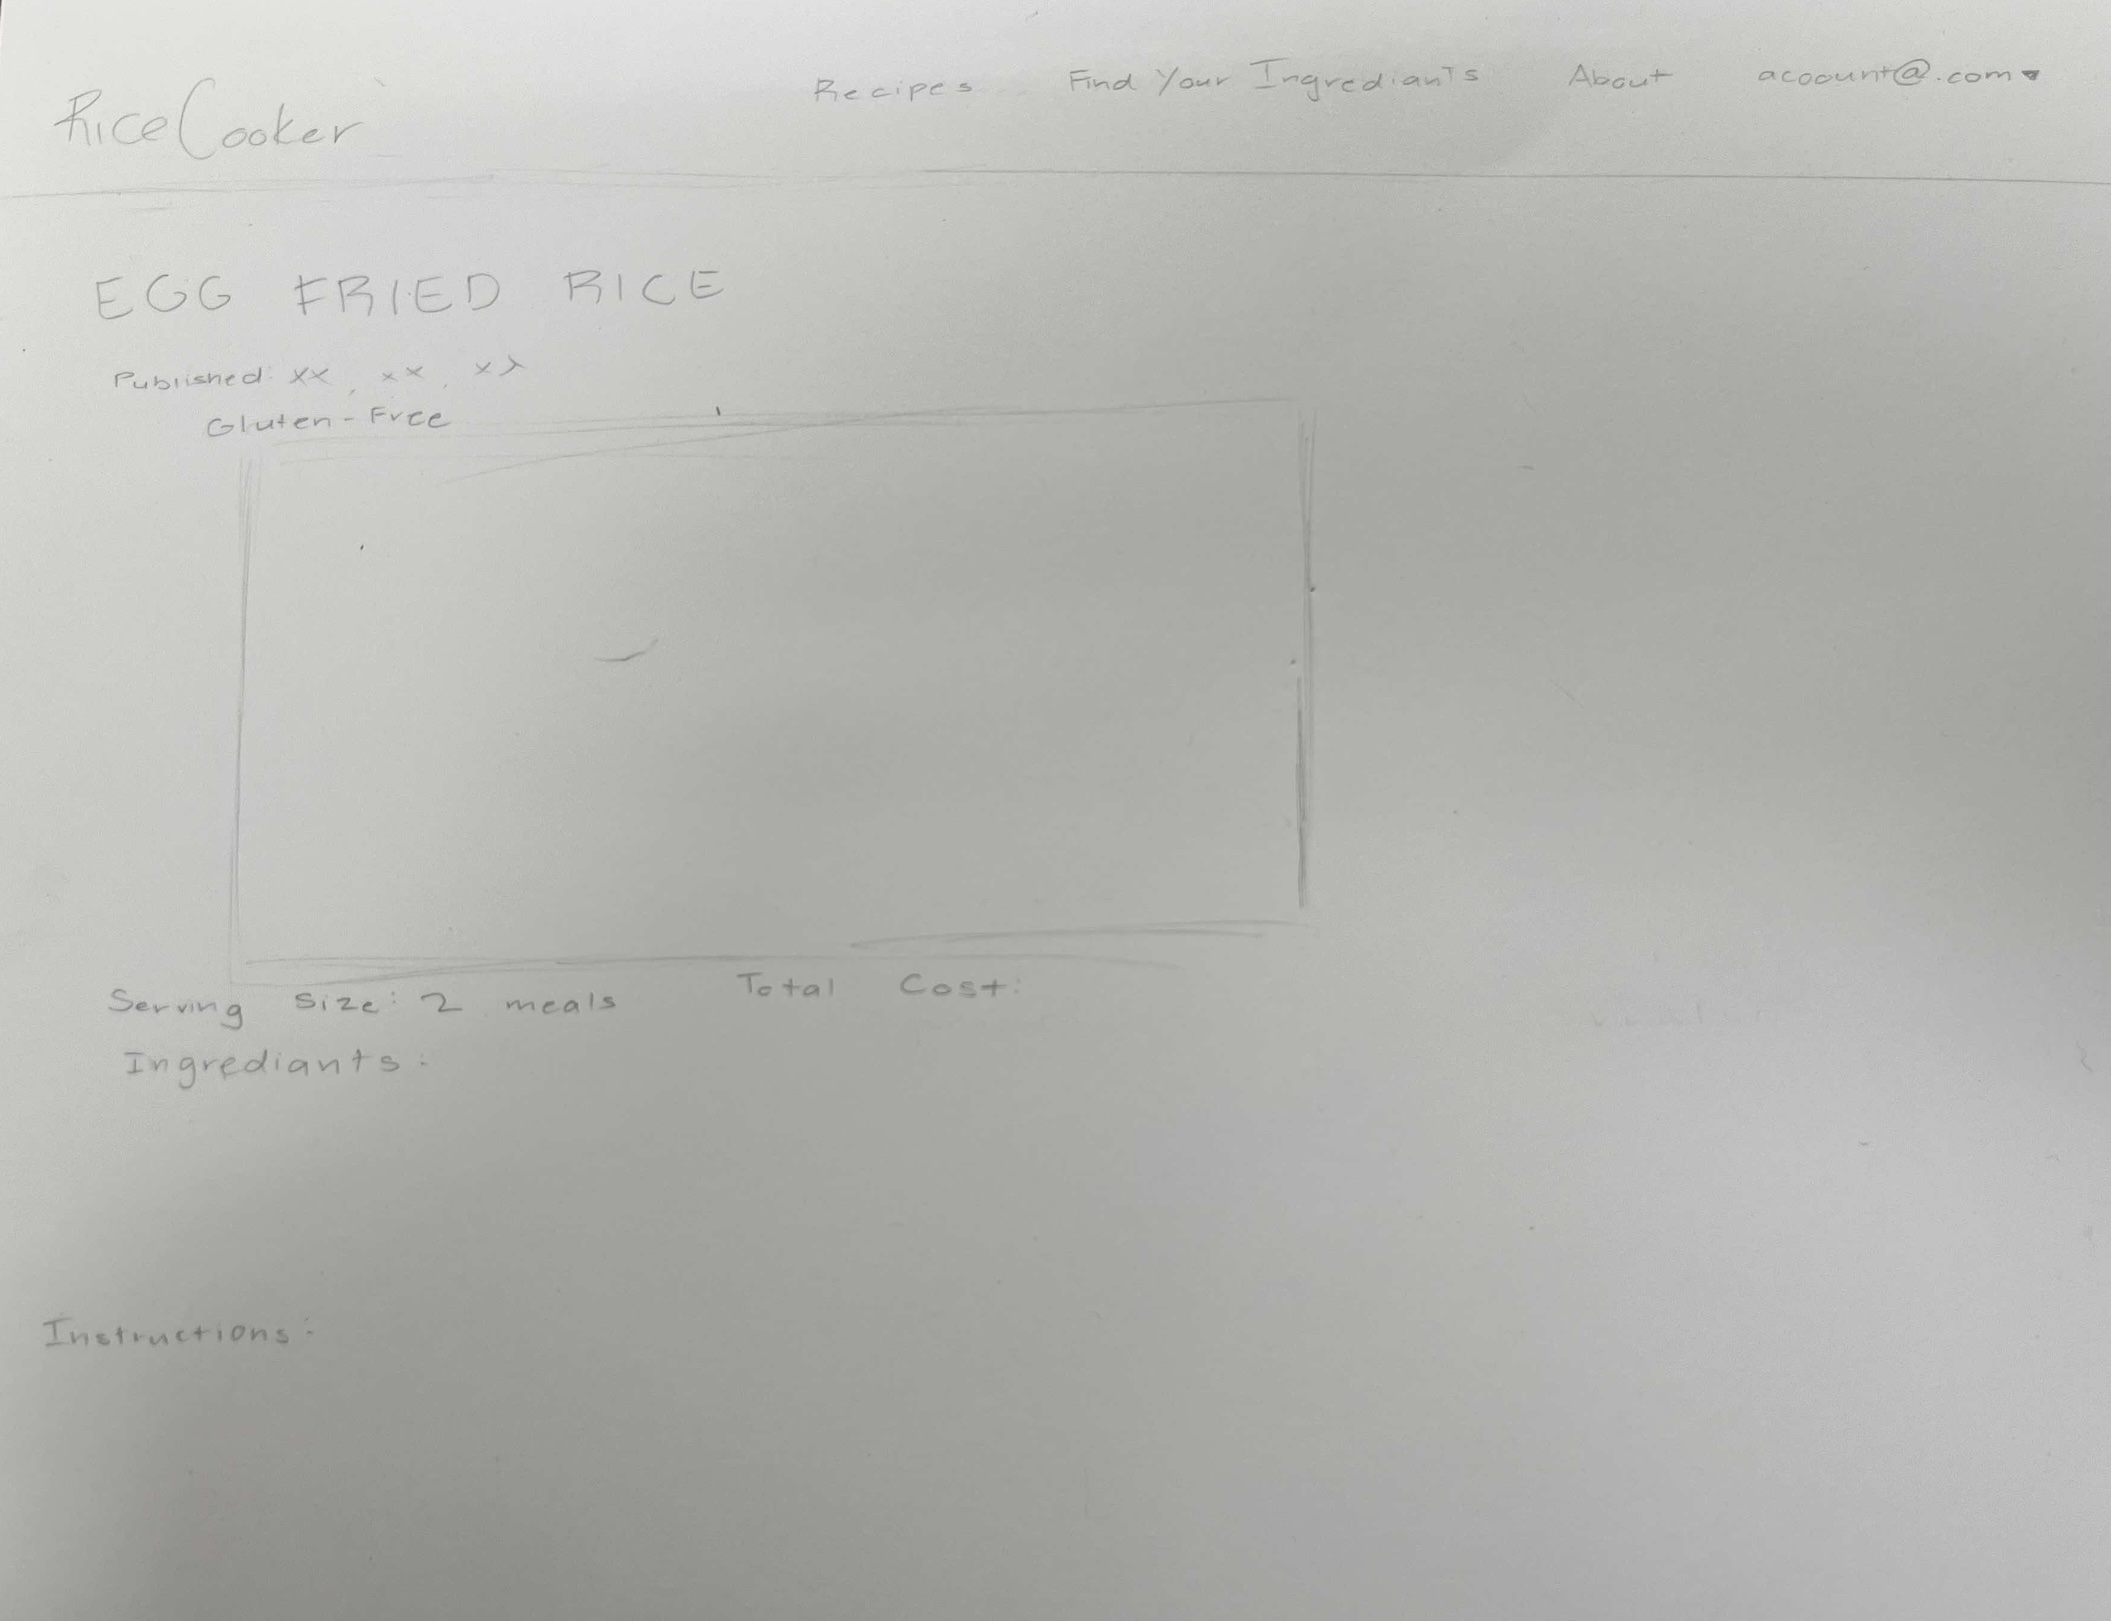 RiceCooker
Recipes Find Your Ingrediants About acoount@.com
EGG FRIED RICE
Published: xx, xx, xx
Gluten-Free
Serving Size: 2 meals Total Cost:
Ingrediants:
Instructions: